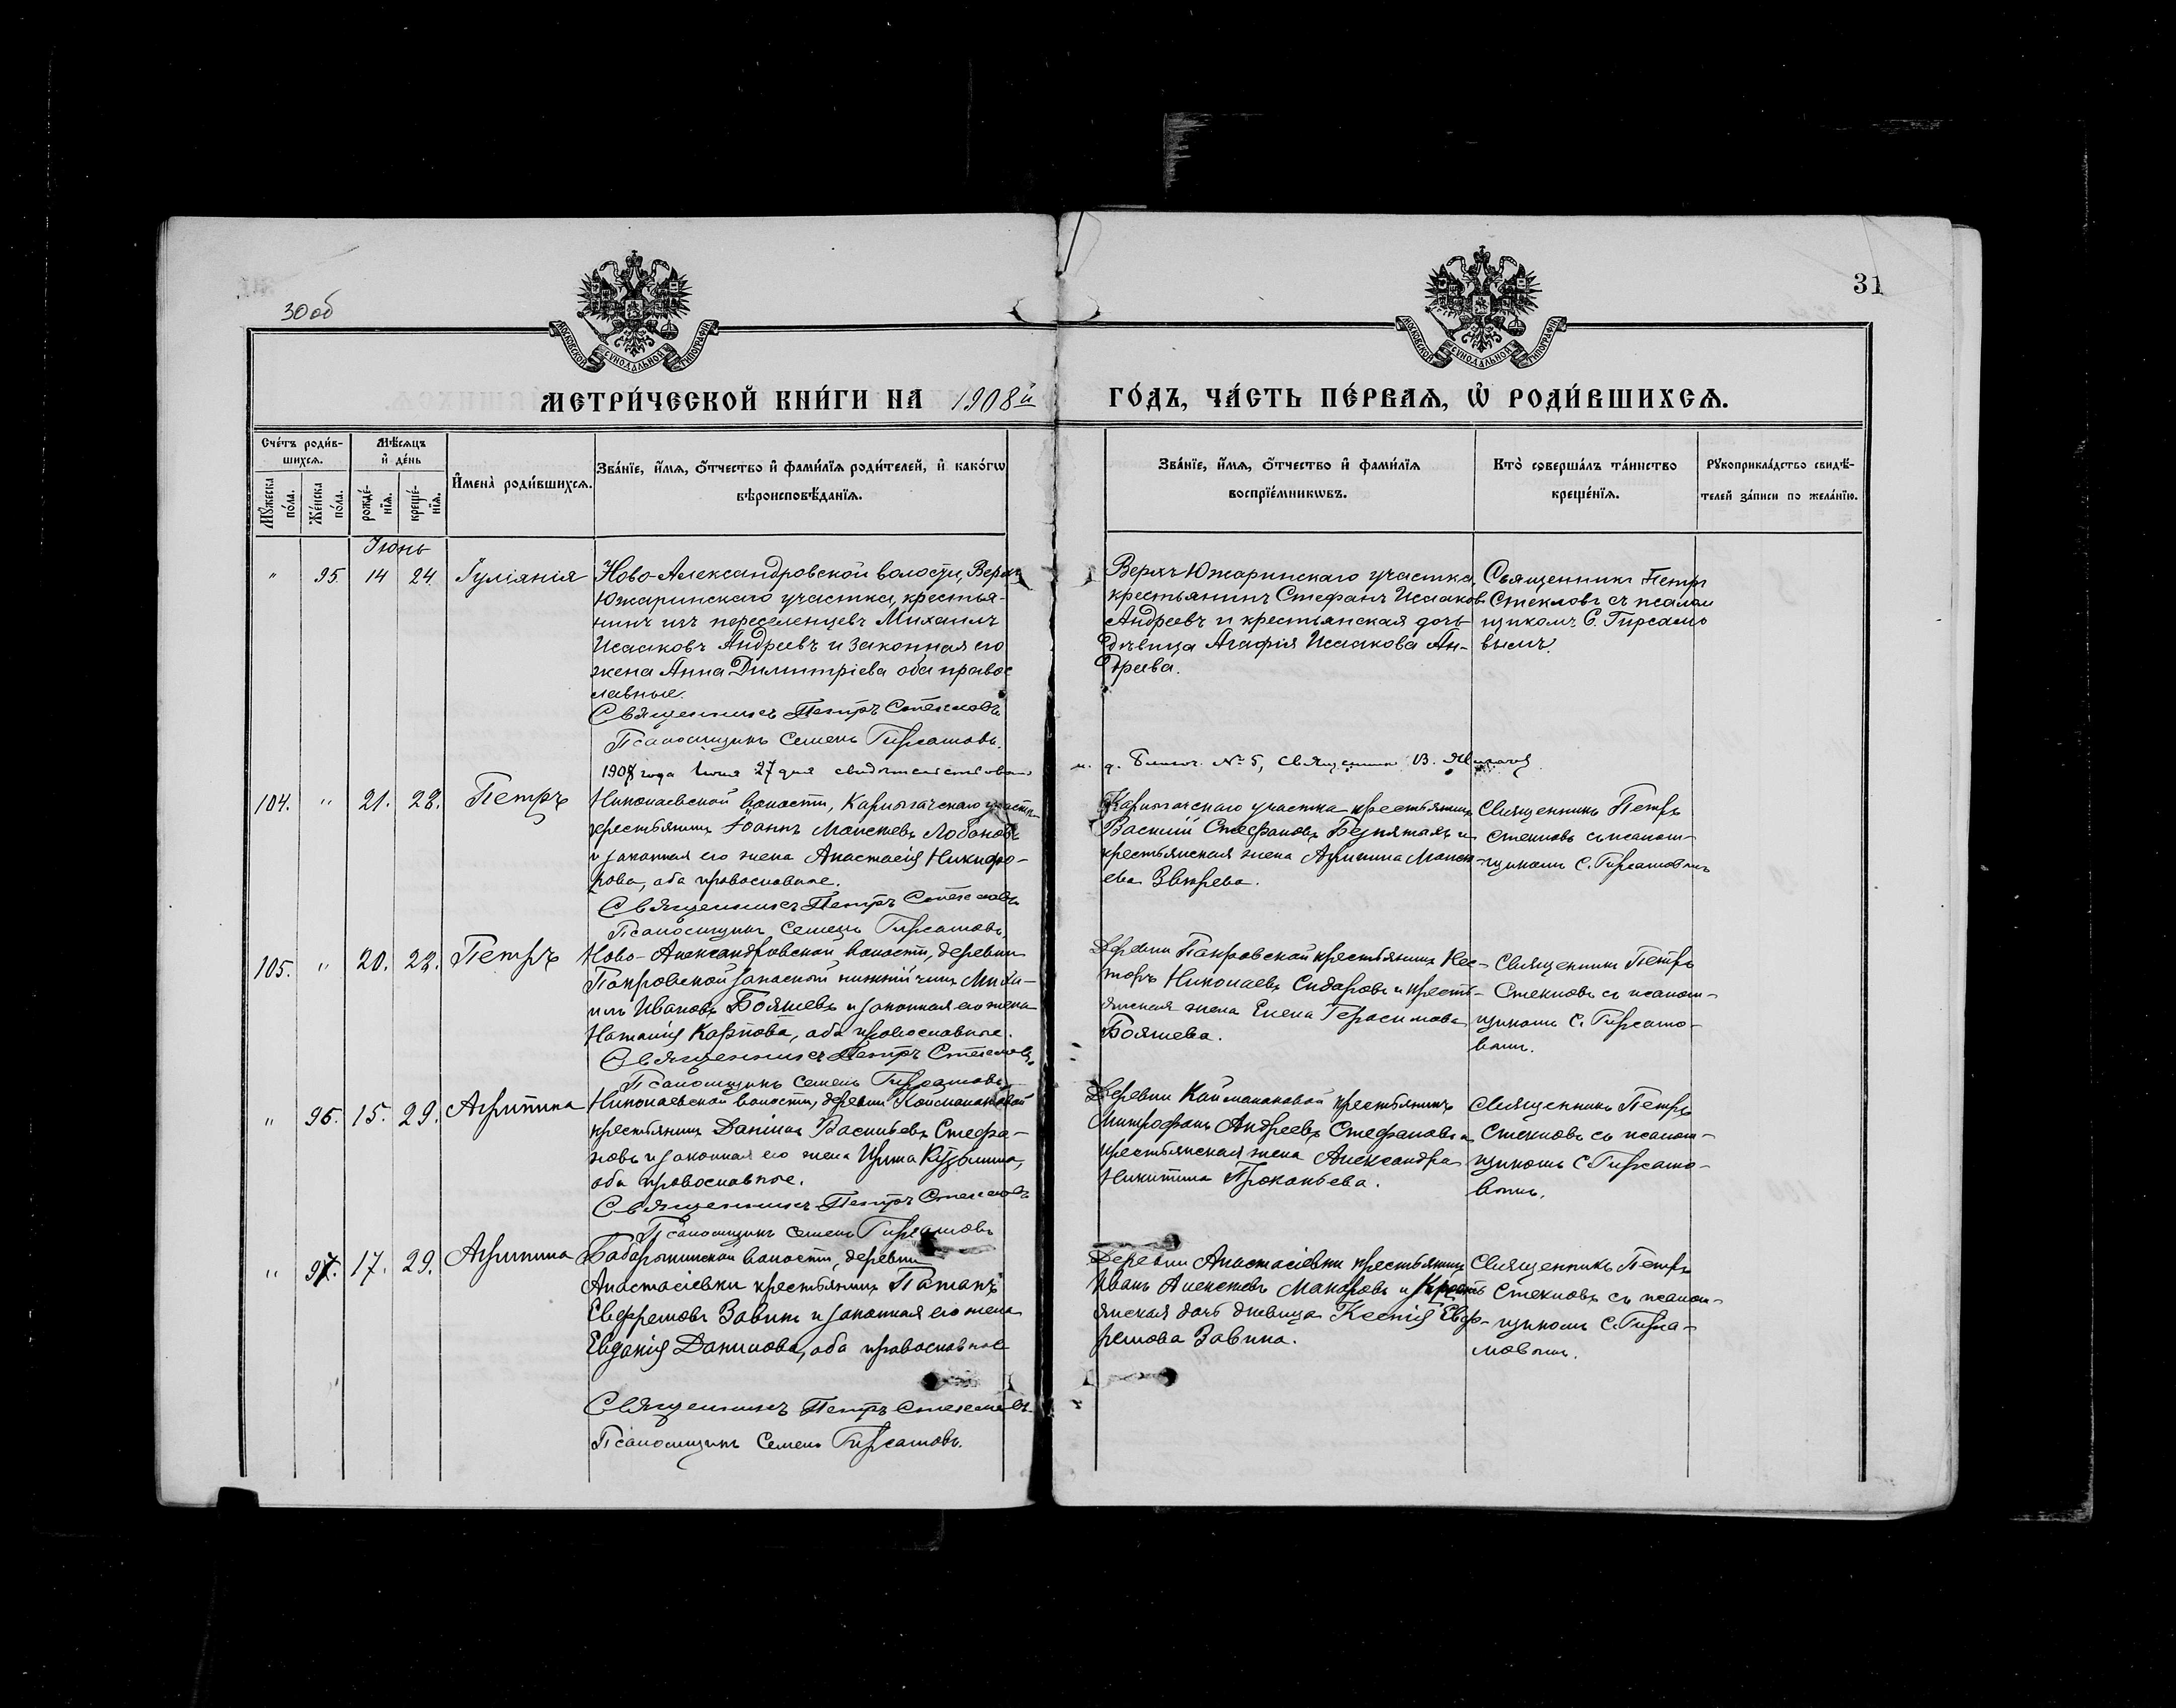 30об
31
МОСКОВСКОЙ СѴНОДАЛЬНОЙ ТИПОГРАФІИ
МОСКОВСКОЙ СѴНОДАЛЬНОЙ ТИПОГРАФІИ
МЕТРИ́ЧЕСКОЙ КНИ́ГИ НА 1908й ГО́ДЪ, ЧА́СТЬ ПЕ́РВАѦ, Ѡ РОДИ́ВШИХСѦ.
Сче́тъ роди́в-
шихсѧ.
Мꙋ́жеска по́ла.
Же́нска по́ла.
Мѣ́сѧцъ и҆ де́нь
рожде́-
нїѧ.
креще́-
нїѧ.
И҆мена̀ роди́вшихсѧ.
Зва́нїе, и҆́мѧ, ѻ҆́тчество и҆ фами́лїѧ роди́телей, и҆ како́гѡ
вѣроисповѣ́данїѧ.
Зва́нїе, и҆́мѧ, ѻ҆́тчество и҆ фами́лїѧ
воспрїе́мникѡвъ.
Кто̀ соверша́лъ та́инство
креще́нїѧ.
Рꙋкоприкла́дство свидѣ́-
телей за́писи по жела́нїю.
Іюнь
" 95 14 24. Іуліанія
Ново-Александровской волости, Верхъ
Южаринскаго участка, крестья-
нинъ изъ переселенцевъ Михаилъ
Исааковъ Андреевъ и законная его
жена Анна Димитріева оба правос
лавные.
Священникъ Петръ Стекловъ
Псаломщикъ Семенъ Гирсамовъ.
Верхъ Южаринскаго участка,
крестьянинъ Стефанъ Исааков
Андреевъ и крестьянская дочь
дѣвица Агафія Исаакова Ан-
дреева.
Священникъ Петръ
Стекловъ съ псалом
щикомъ С. Гирсамо
вымъ.
1908 года Іюля 27 дня свидетельствовалъ
и. д. Благоч. № 5, Священникъ В.
104. " 21. 28. Петръ
Николаевской волости, Карагачскаго участка
крестьянинъ Іоаннъ Моисеевъ Лобановъ
и законная его жена Анастасія Никифо-
рова, оба православные.
Священникъ Петръ Стекловъ
Псаломщикъ Семенъ Гирсамовъ
Карагачскаго участка крестьянинъ
Василій Стефановъ и
крестьянская жена Агрипина Моисе
ева Звѣрева.
Священникъ Петръ
Стекловъ съ псалом-
щикомъ С. Гирсамовымъ
105. " 20. 28. Петръ
Ново-Александровской волости, деревни
Покровской запасной нижній чинъ Миха-
илъ Ивановъ Бояшевъ и законная его жена
Наталія Карпова, оба православные.
Священникъ Петръ Стекловъ
Псаломщикъ Семенъ Гирсамовъ
Деревни Покровской крестьянинъ Нес-
торъ Николаевъ Сидоровъ и кресть-
янская жена Елена Герасимова
Бояшева.
Священникъ Петръ
Стекловъ съ псалом-
щикомъ С. Гирсамо-
вымъ.
" 96. 15. 29. Агрипина
Николаевской волости, деревни Коймоконовой
крестьянинъ Даніилъ Васильевъ Стефа-
новъ и законная его жена Ирина Кузьмина,
оба православные.
Священникъ Петръ Стекловъ
Псаломщикъ Семенъ Гирсамовъ
Деревни Коймоконовой крестьянинъ
Митрофанъ Андреевъ Стефановъ и
крестьянская жена Александра
Никитина Прокопьева.
Священникъ Петръ
Стекловъ съ псалом-
щикомъ С. Гирсамо-
вымъ.
" 97. 17. 29. Агрипина
волости, деревни
Анастасіевки крестьянинъ Потапъ
Евфремовъ Зовинъ и законная его жена
Евдокія Данилова, оба православные
Священникъ Петръ Стекловъ
Псаломщикъ Семенъ Гирсамовъ.
Деревни Анастасіевки крестьянинъ
Иванъ Алексѣевъ Макаровъ и кресть
янская дочь дѣвица Ксенія Евф-
ремова Зовина.
Священникъ Петръ
Стекловъ съ псалом-
щикомъ С. Гирса-
мовымъ.